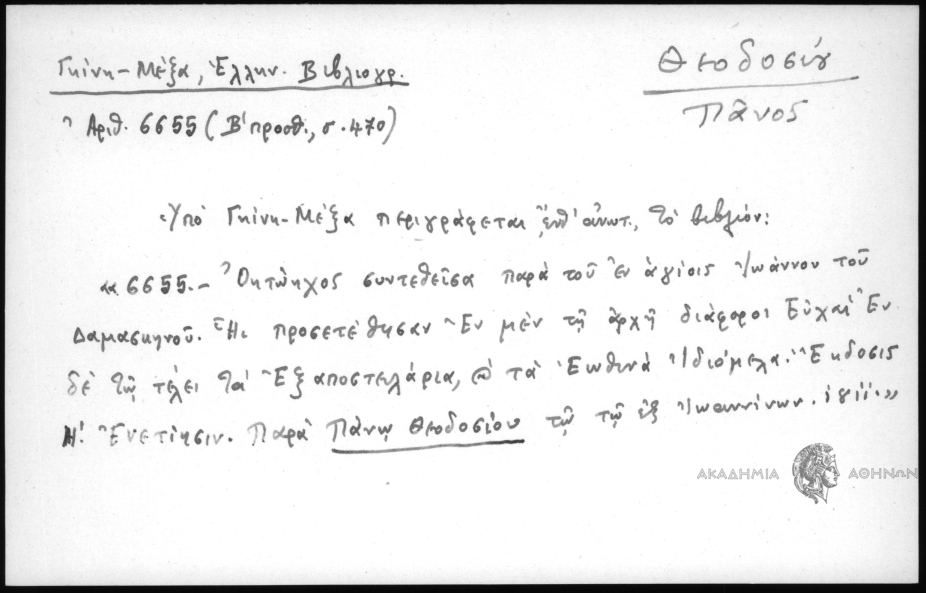 Γκίνη-Μέξα, Ἑλλην. Βιβλιογρ.
Θεοδοσίου
Πᾶνος
Ἀριθ. 6655 (Β' προσθ., σ. 470)
Ὑπὸ Γκίνη-Μέξα περιγράφεται, ἔνθ' ἀνωτ., τὸ βιβλίον:
«6655.- Ὀκτώηχος συντεθεῖσα παρὰ τοῦ Ἐν ἁγίοις Ἰωάννου τοῦ
Δαμασκηνοῦ. Ἧι προσετέθησαν Ἐν μὲν τῇ ἀρχῇ διάφοροι Εὐχαὶ Ἐν
δὲ τῷ τέλει τὰ Ἐξαποστειλάρια, τὰ Ἑωθινὰ Ἰδιόμελα. Ἔκδοσις
Η! Ἐνετίησιν. Παρὰ Πάνῳ Θεοδοσίου τῷ τῷ ἐξ Ἰωαννίνων.
ΑΚΑΔΗΜΙΑ ΑΘΗΝΩΝ